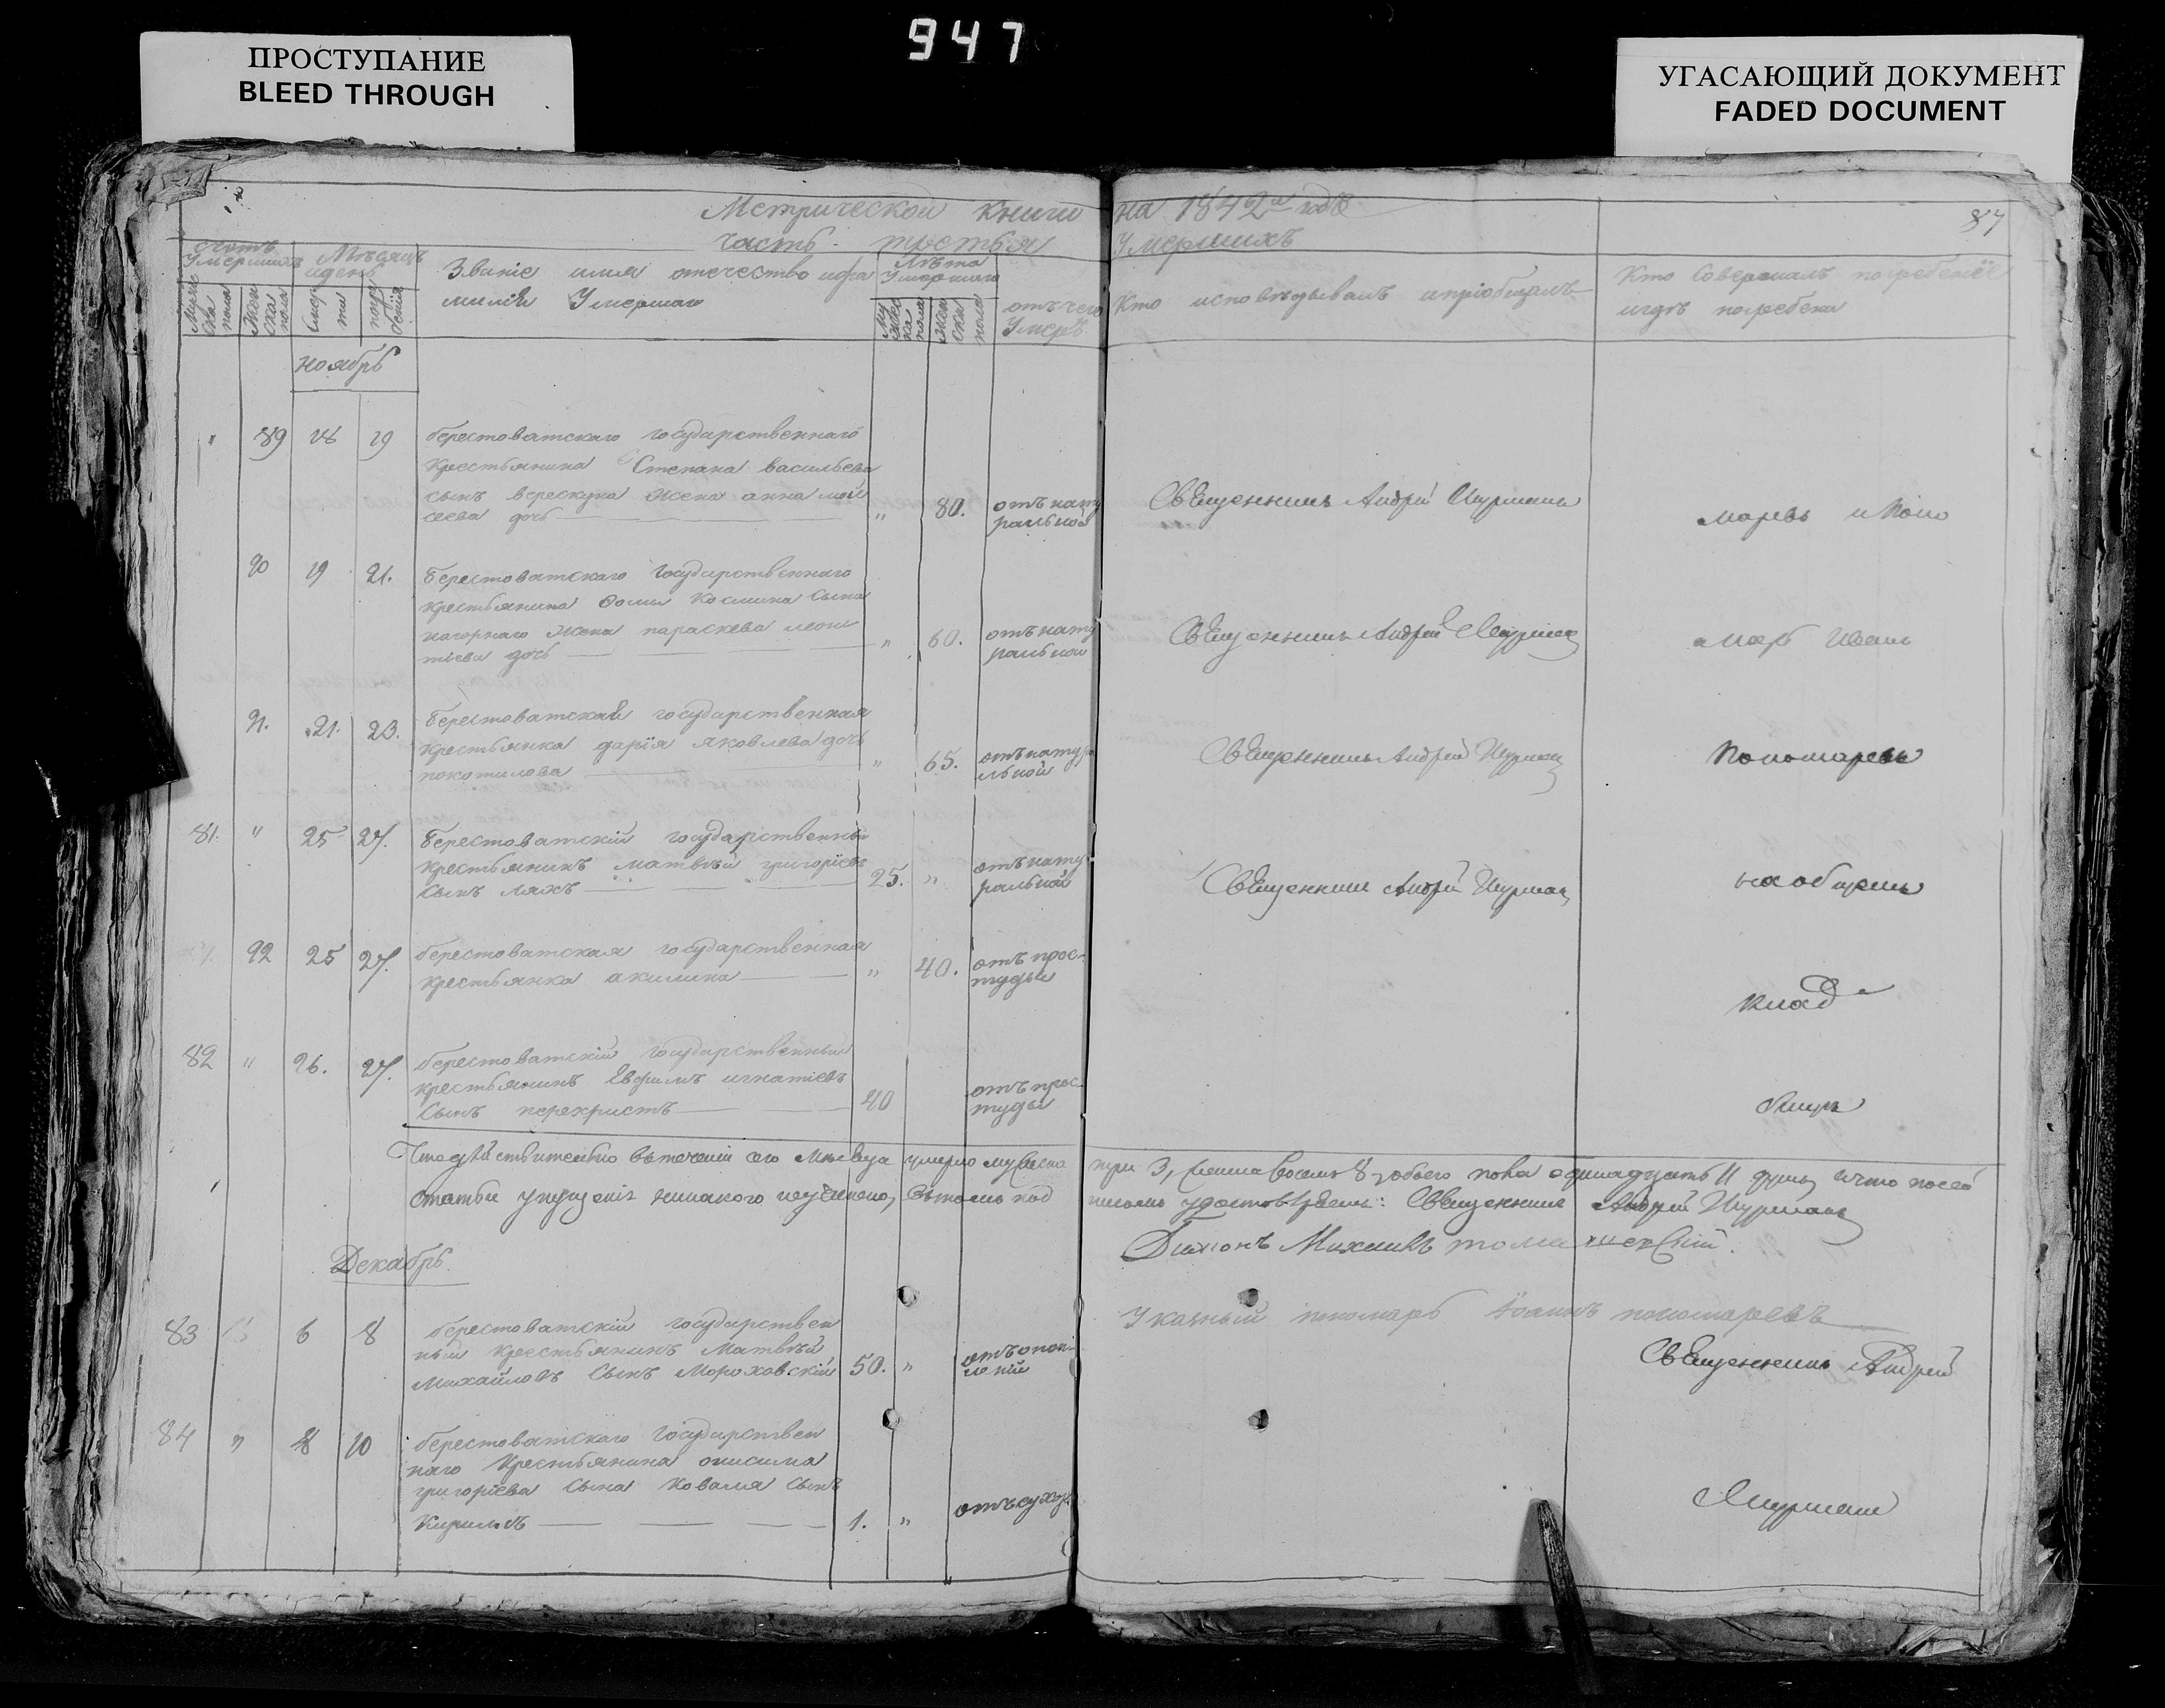 947
ПРОСТУПАНИЕ
BLEED THROUGH
УГАСАЮЩИЙ ДОКУМЕНТ
FADED DOCUMENT
Метрической книги на 1842й годъ
87
часть третья Умершихъ
Счетъ Умершихъ
Мѣсяцъ и день
Званіе имя отечество и фа
миліи Умершаго
Лѣта Умершаго
отъ чего Умеръ
Кто исповѣдывалъ и пріобщалъ
Кто Совершалъ погребеніе
и гдѣ погребени
Муже
ска
пола
Жен
ска
пола
Смер
ти
погре
бенія
Му
жес
ка
пола
Жен
ска
пола
ноябрь
" 89 18 19 берестоватскаго государственнаго
крестьянина Степана васильева
сынъ верескуна Жена анна мой
сеева дочь " 80. отъ нату
ральной
Священникъ Андрей Шурман
90 19 21. берестоватскаго государственнаго
крестьянина Фомы Космина Сына
нагорнаго Жена параскева леон
тіева дочь " 60. отъ нату
ральной
Священникъ Андрей
Иванъ
91. 21. 23. берестоватская государственная
крестьянка дарія яковлева дочь
покотилова " 65. отъ натура
льной
Священникъ Андрей
Пономаревъ
81. " 25 27. берестоватскій государственный
крестьянинъ матвѣй григоріевъ
Сынъ ляхъ 25. " отъ нату
ральной
Священникъ Андрей
на общемъ
92 25 27. берестоватская государственная
крестьянка акилина " 40. отъ прос
туды
клад
82 " 26. 27. берестоватскій государственный
крестьянинъ Евфимъ игнатіевъ
Сынъ перехристъ 40 отъ прос
туды
Что дѣйствительно въ теченіи сего Мѣсяца умерло мужеска три 3, женска восемь 8, обоего пола одинадцать 11 душъ и что по сей
статьи упущенія никакого неучинено, въ томъ под писомъ удостовѣряемъ: Священникъ Андрей
Дияконъ Михаилъ
Декабрь.
Указный пономарь Іоаннъ пономаревъ
83 6 8 берестоватскій государствен
ный крестьянинъ Матвѣй
Михайловъ Сынъ Мороховскій 50. "
Священникъ Андрей
84 " 8 10 берестоватскаго государствен
наго крестьянина онисима
григоріева Сына Коваля Сынъ
Кирилъ 1. " отъ сухот